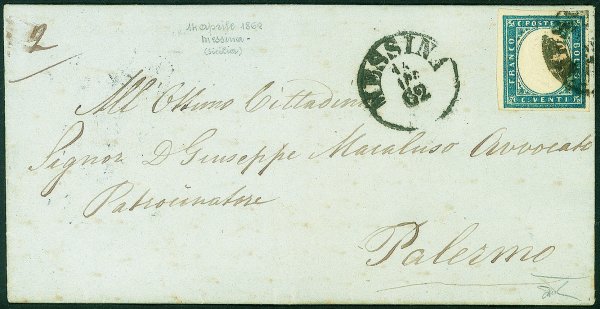 2
14 aprile 1862
Messina
(Sicilia)
MESSINA
14
APR
62
C. POSTE
FRANCO
BOLLO
C. VENTI
All' Ottimo Cittadino
Signor D. Giuseppe Macaluso Avvocato
Patrocinatore
Palermo